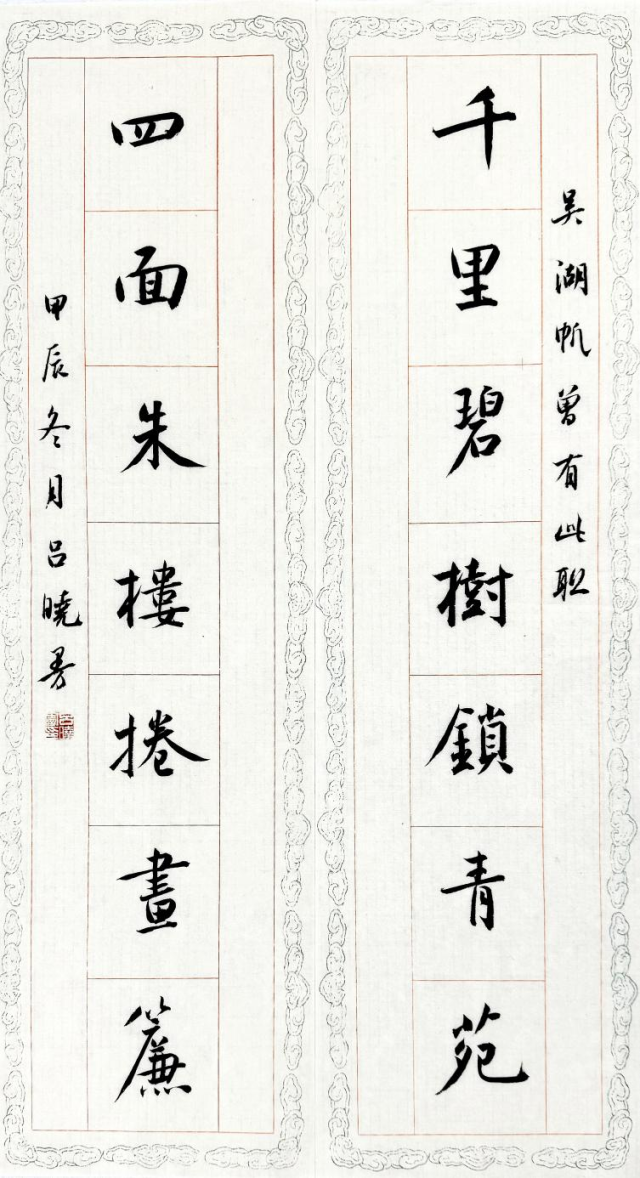 吴湖帆曾有此联
千里碧樹鎖青苑
四面朱樓捲畫簾
甲辰冬月吕曉